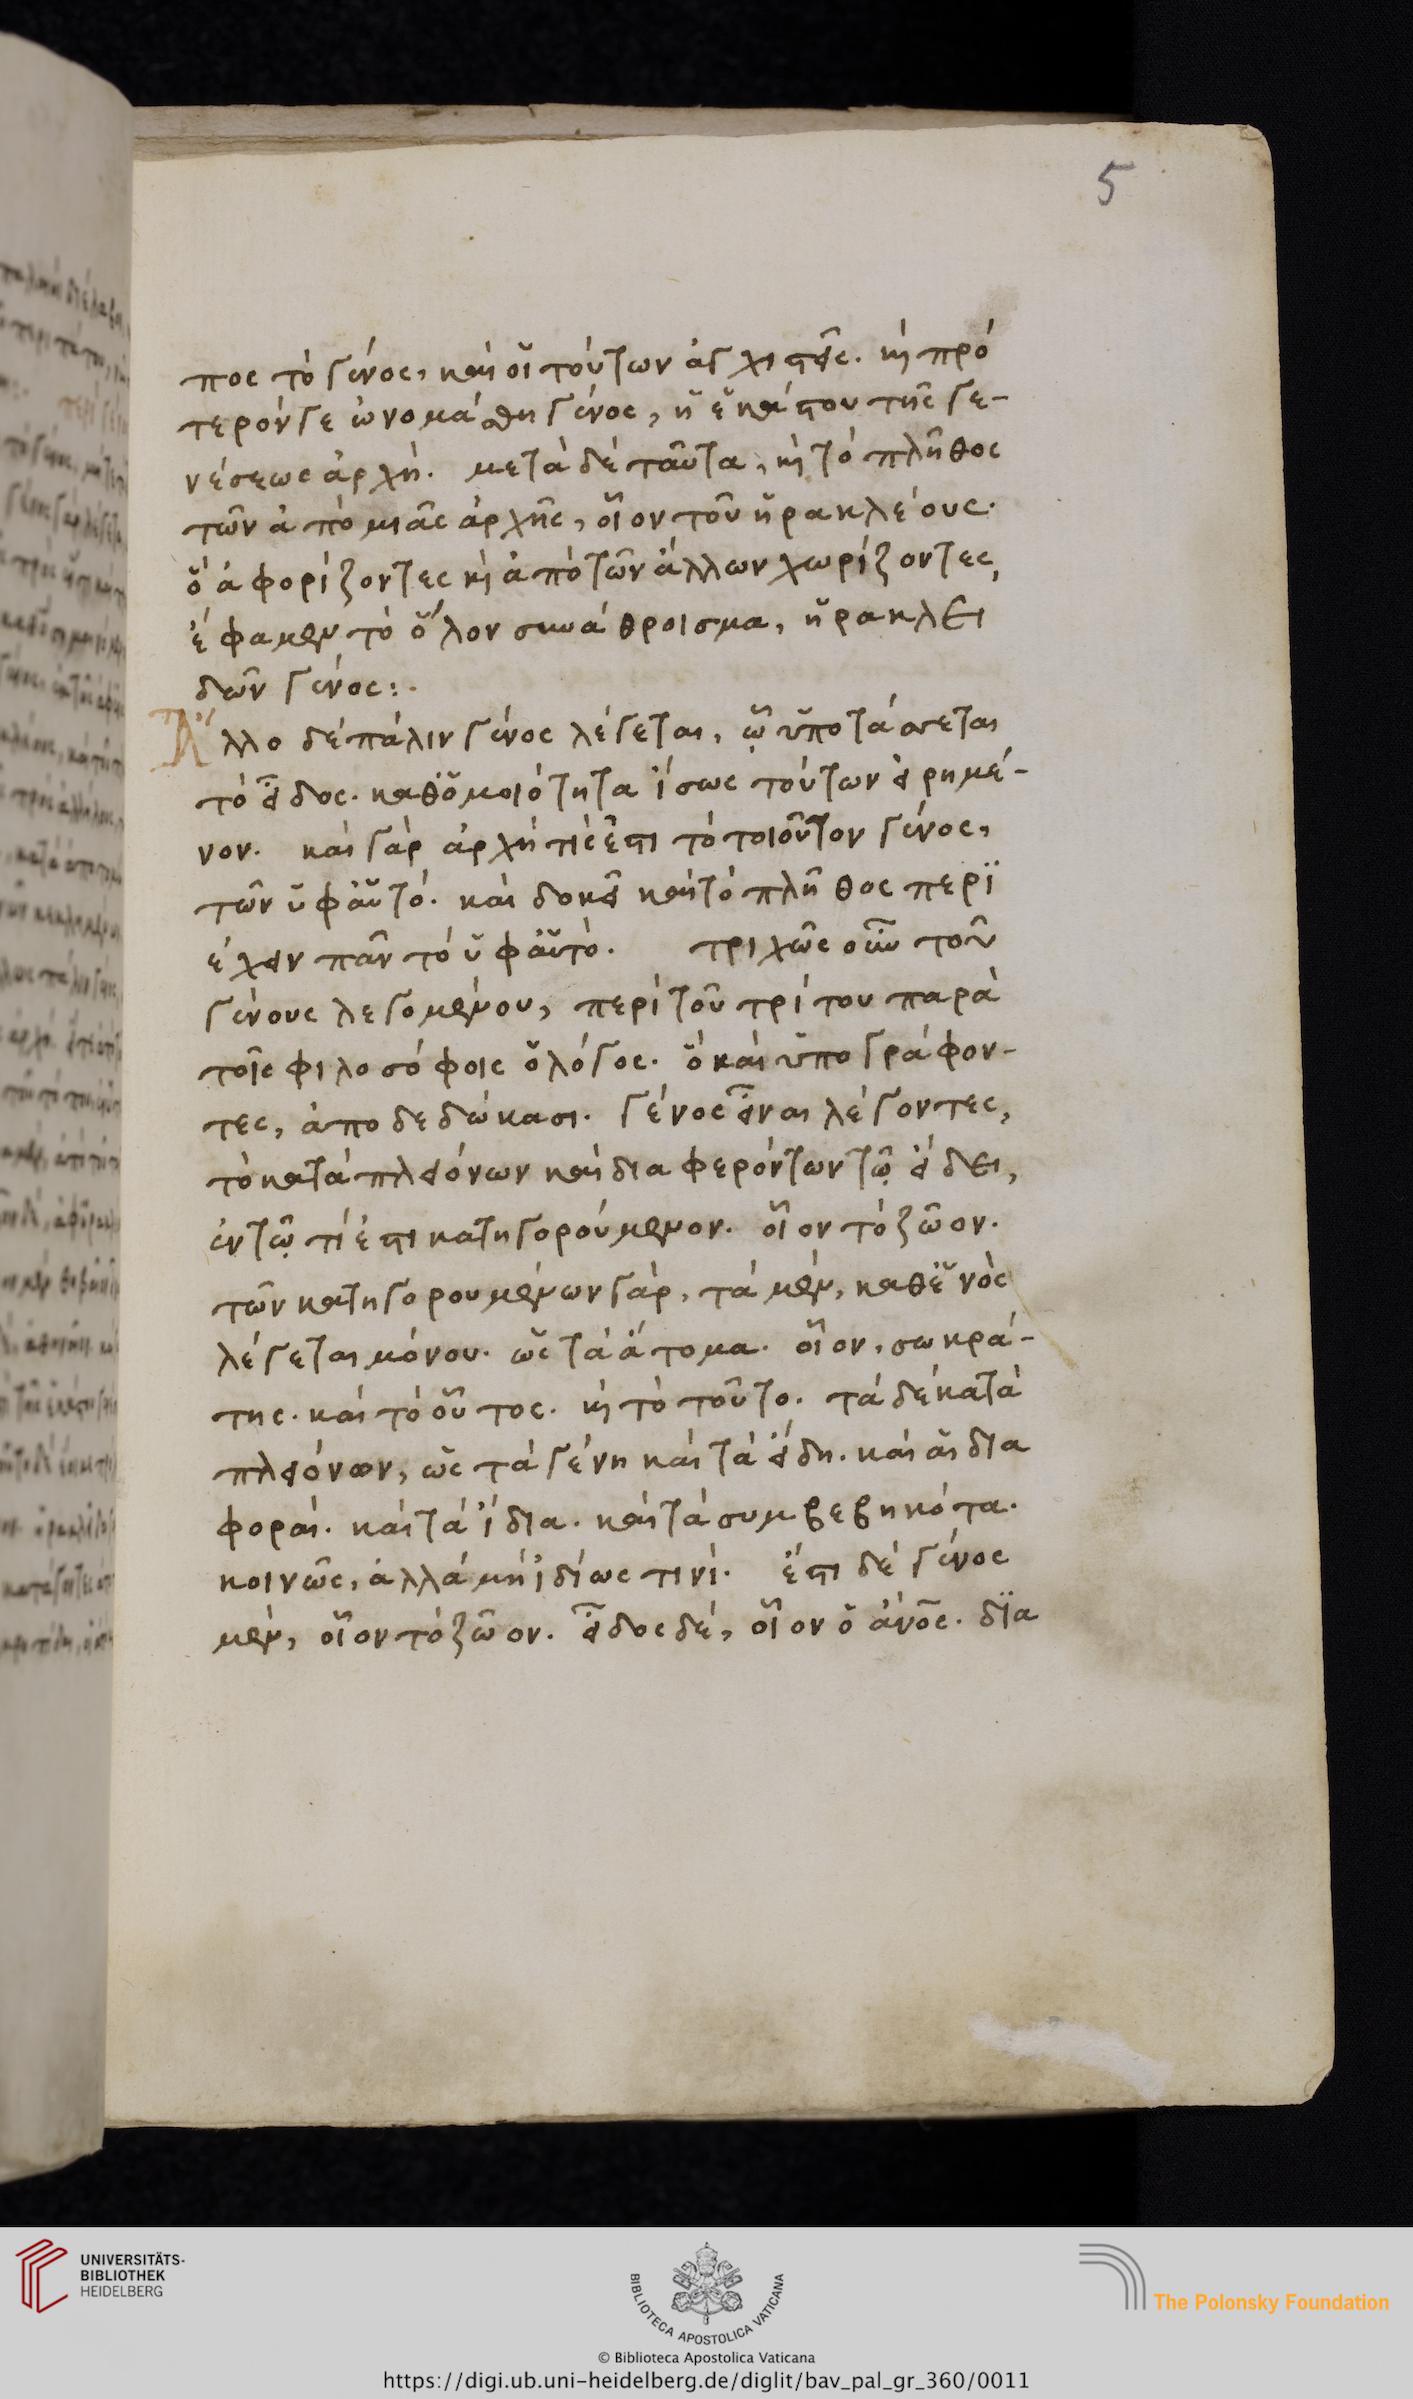 5
πος τὸ γένος, καὶ οἱ τούτων ἀγχιστεῖς. κὴ πρό
τερόν γε ὠνομάσθη γένος, ἡ ἑκάστου τῆς γε-
νέσεως ἀρχή. μετὰ δὲ ταῦτα, κὴ τὸ πλῆθος
τῶν ἀπὸ μιᾶς ἀρχῆς, οἷον τοῦ ἡρακλέους.
ὃ ἀφορίζοντες κὴ ἀπὸ τῶν ἄλλων χωρίζοντες,
ἔφαμεν τὸ ὅλον συνάθροισμα, ἡρακλει
δῶν γένος:.
Ἄλλο δὲ πάλιν γένος λέγεται, ᾧ ὑποτάσσεται
τὸ εἶδος. καθ ὁμοιότητα ἴσως τούτων εἰρημέ-
νον. καὶ γὰρ ἀρχή τίς ἐστι τὸ τοιοῦτον γένος,
τῶν ὑφ ἁυτό. καὶ δοκεῖ καὶ τὸ πλῆθος περϊ
έχειν πᾶν τὸ ὑφ ἁυτὸ. τριχῶς οὖν τοῦ
γένους λεγομένου, περὶ τοῦ τρίτου παρὰ
τοῖς φιλοσόφοις ὁ λόγος. ὃ καὶ ὑπογράφον-
τες, ἀποδεδώκασι. γένος εἶναι λέγοντες,
τὸ κατὰ πλειόνων καὶ διαφερόντων τῷ εἴδει,
ἐν τῷ τί ἐστι κατηγορούμενον. οἷον τὸ ζῶον.
τῶν κατηγορουμένων γὰρ, τὰ μὲν, καθ ἑνὸς
λέγεται μόνου. ὡς τὰ ἄτομα. οἷον, σωκρά-
της. καὶ τὸ οὗτος. κὴ τὸ τοῦτο. τὰ δὲ κατὰ
πλειόνων, ὡς τὰ γένη καὶ τὰ εἴδη. καὶ αἱ δια
φοραί. καὶ τὰ ἴδια. καὶ τὰ συμβεβηκότα.
κοινῶς, ἀλλὰ μὴ ἰδίως τινί. ἔστι δὲ γένος
μὲν, οἷον τὸ ζῶον. εἶδος δὲ, οἷον ὁ ἄνος. δϊα
UNIVERSITÄTS-
BIBLIOTHEK
HEIDELBERG
BIBLIOTECA APOSTOLICA VATICANA
The Polonsky Foundation
© Biblioteca Apostolica Vaticana
https://digi.ub.uni-heidelberg.de/diglit/bav_pal_gr_360/0011